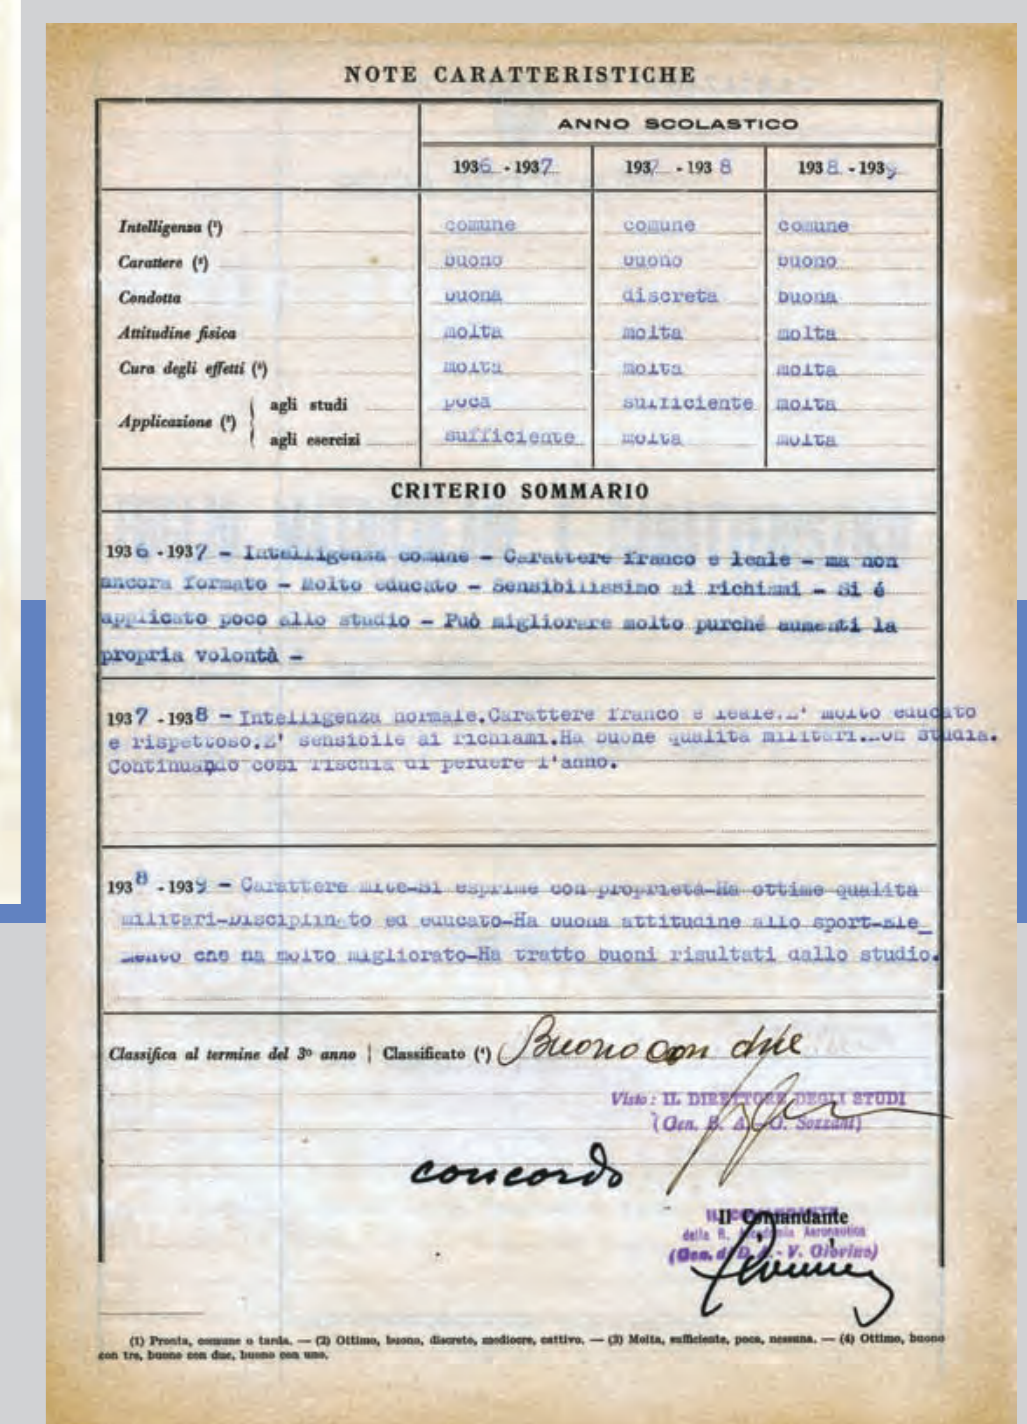 NOTE CARATTERISTICHE
ANNO SCOLASTICO
1936 - 1937 1937 - 1938 1938 - 1939
Intelligenza (¹) comune comune comune
Carattere (²) buono buono buono
Condotta buona discreta buona
Attitudine fisica molta molta molta
Cura degli effetti (³) molta molta molta
Applicazione (³)
agli studi poca sufficiente molta
agli esercizi sufficiente molta molta
CRITERIO SOMMARIO
1936 - 1937 - Intelligenza comune - Carattere franco e leale - ma non
ancora formato - Molto educato - Sensibilissimo ai richiami - Si é
applicato poco allo studio - Può migliorare molto purché aumenti la
propria volontà -
1937 - 1938 - Intelligenza normale.Carattere franco e leale.E' molto educato
e rispettoso.E' sensibile ai richiami.Ha buone qualità militari.Non studia.
Continuando così rischia di perdere l'anno.
1938 - 1939 - Carattere mite-Si esprime con proprietà-Ha ottime qualità
militari-Disciplinato ed educato-Ha buona attitudine allo sport-Ele_
mento che ha molto migliorato-Ha tratto buoni risultati dallo studio.
Classifica al termine del 3º anno | Classificato (⁴) Buono con due
Visto: IL DIRETTORE DEGLI STUDI
(Gen. B. A. - G. Sozzani)
concordo
Il Comandante
IL COMANDANTE
della R. Accademia Aeronautica
(Gen. di D. A. - V. Giovine)
(1) Pronta, comune o tarda. — (2) Ottimo, buono, discreto, mediocre, cattivo. — (3) Molta, sufficiente, poca, nessuna. — (4) Ottimo, buono
con tre, buono con due, buono con uno.